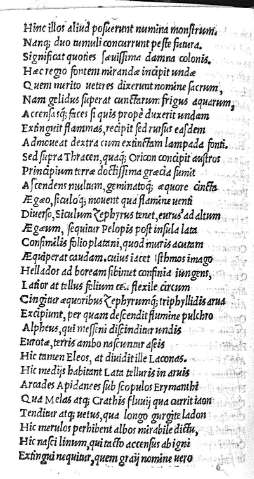 Hinc illos aliud posuerunt numina monstrum.
Nanq; duo tumuli concurrunt peste futura.
Significat quoties sæuissima damna colonis.
Hæc regio fontem mirandæ incipit undæ
Quem merito uetres dixerunt nomine sacrum,
Nam gelidus superat cunctarum frigus aquarum,
Accensasq; faces si quis propè duxerit undam
Extinguit flammas, recipit sed rursus easdem
Admoueat dextra cum extinctam lampada fonti.
Sed supra Thracen, quaq; Oricon concipit austros
Principium terræ doctissima græcia sumit
Ascendens multum, geminatoq; æquore cincta
Ægæo, siculoq; mouent qua flamine uenti
Diuerso, Siculum Zephyrus tenet, eurus ad altum
Ægæum, sequitur Pelopis post insula lata
Consimilis folio platani, quod maris acutam
Æquiperat caudam, cuius iacet isthmos imago
Hellados ad boream sibinet confinia iungens,
Latior at tellus folium ceu flexile circum
Cingitur æquoribus Zephyrumq; triphyllidis arua
Excipiunt, per quam descendit flumine pulchro
Alpheus, qui messini discinditur undis
Eurotæ, terris ambo nascuntur aseis
Hic tamen Eleos, at diuidit ille Laconas.
Hic medijs habitant Lata telluris in aruis
Arcades Apidanees sub scopulos Erymanthi
Qua Melas atq; Crathis fluuij qua currit iaon
Tenditur atq; uetus, qua longo gurgite ladon
Hic merulos perhibent albos mirabile dictu,
Hic nasci linum, qui tacto accensus ab igni
Extingui nequitur, quem graij nomine uero